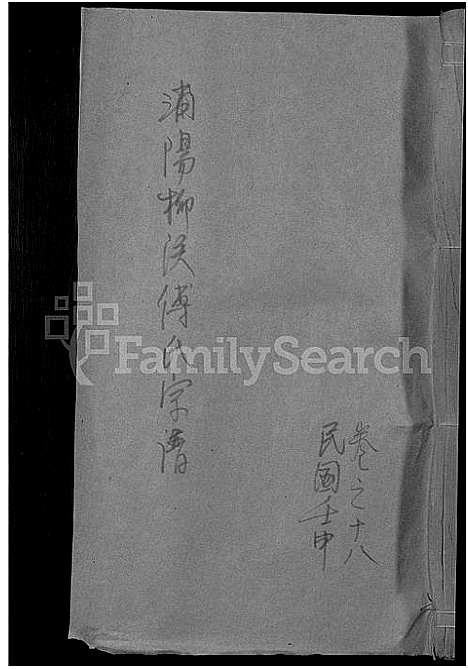 卷之十八
民國壬申
浦陽柳溪傅氏宗譜
FamilySearch